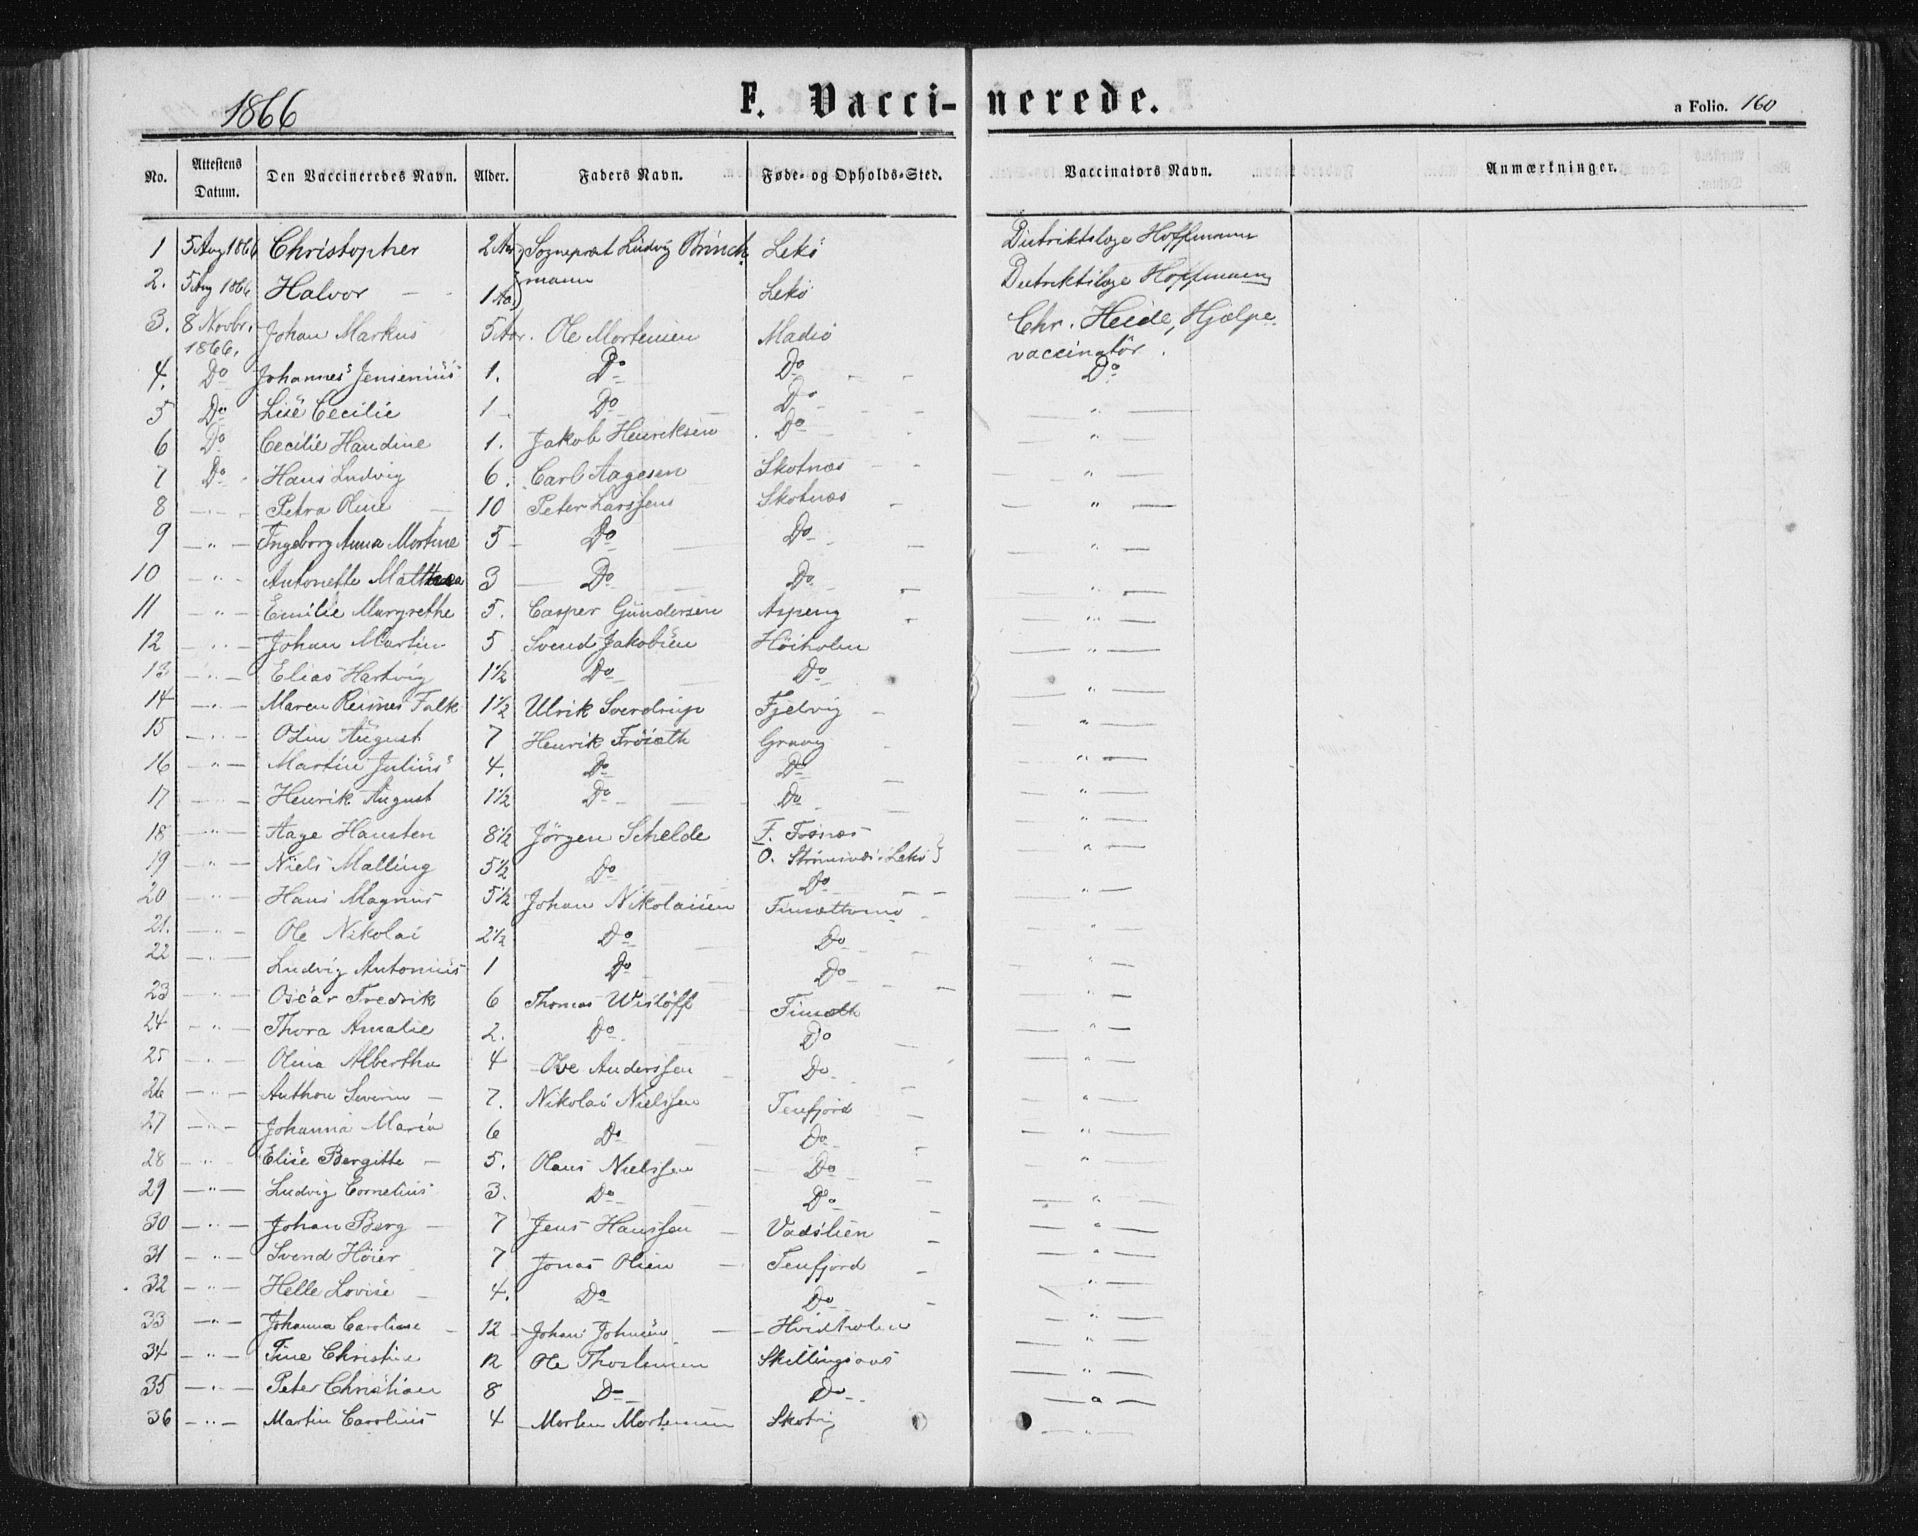 1866
F. Vaccinerede.
a Folio. 160
No. Attestens Datum. Den Vaccineredes Navn. Alder. Faders Navn. Føde- og Opholds-Sted. Vaccinators Navn. Anmærkninger.
1 5 Aug 1866 Christopher 2 Aar Sognepræst Ludvig Brinck Lekö Distriktslæge Hoffmann
2. 5 Aug 1866 Halvor — - 1 Aar mann Lekö Distriktslæge Hoffmann
3. 8 Novbr. 1866. Johan Markus 5 Aar. Ole Mortensen Madsö Chr. Heide, Hjælpe
vaccinatör.
4. Do Johannes Jensenius 1. Do Do Do
5 Do Lise Cecilie 1 Do Do — " —
6 Do Cecilie Haudine 1. Jakob Henriksen Do — " —
7 Do Hans Ludvig 6. Carl Aagesen Skotnæs — " —
8 — " — Petra Oline 10 Peter Larssen Skotnæs — " —
9 — " — Ingeborg Anna Mortine 5 Do Do — " —
10 — " — Antonette Mathea 3 Do Do — " —
11 — " — Emilie Margrethe 5. Casper Gundersen Aspeng — " —
12 — " — Johan Martin 5 Svend Jakobsen Höiholm — " —
13 — " — Elias Hartvig 1 1/2 Do Do — " —
14 — " — Maren Falk 1 1/2 Ulrik Sverdrup Fjelvig — " —
15 — " — Odin August 7 Henrik Fröseth Gravg — " —
16 — " — Martin Julius 4. Do Do — " —
17 — " — Henrik August 1 1/2 Do Do — " —
18 — " — Aage Hansten 8 1/2 Jörgen Schelde F. Fosnæs — " —
O. Strömsnæs i Lekö}
19 — " — Niels Malling 5 1/2 Do Do — " —
20 — " — Hans Magnus 5 1/2 Johan Nikolaisen — " —
21. — " — Ole Nikolai 2 1/2 Do Do — " —
22 — " — Ludvig Antonius 1 Do Do — " —
23 — " — Oscar Fredrik 6 Thomas Wislöff Finsæth — " —
24 — " — Thora Amalie 2. Do Do — " —
25 — " — Olina Albertha 4 Ove Anderssen Do — " —
26 — " — Anthon Severin — 7. Nikolai Nielssen Tenfjord — " —
27 — " — Johanna Maria 6 Do Do — " —
28 — " — Elise Bergitte — 5. Olaus Nielssen Do — " —
29 — " — Ludvig Cornelius 3. Do Do — " —
30 — " — Johan Berg — 7 Jens Hanssen Vadslien — " —
31 — " — Svend Höier 7 Jonas Olsen Tenfjord — " —
32 — " — Helle Lovise — 4. Do Do — " —
33 — " — Johanna Caroline — 12 Johan Johnsen — Hvidholm — " —
34 — " — Tine Christine 12 Ole Thorstensen — " —
35 — " — Peter Christian 8 Do Do — " —
36 — " — Martin Carolius 4 Morten Mortensen — " —